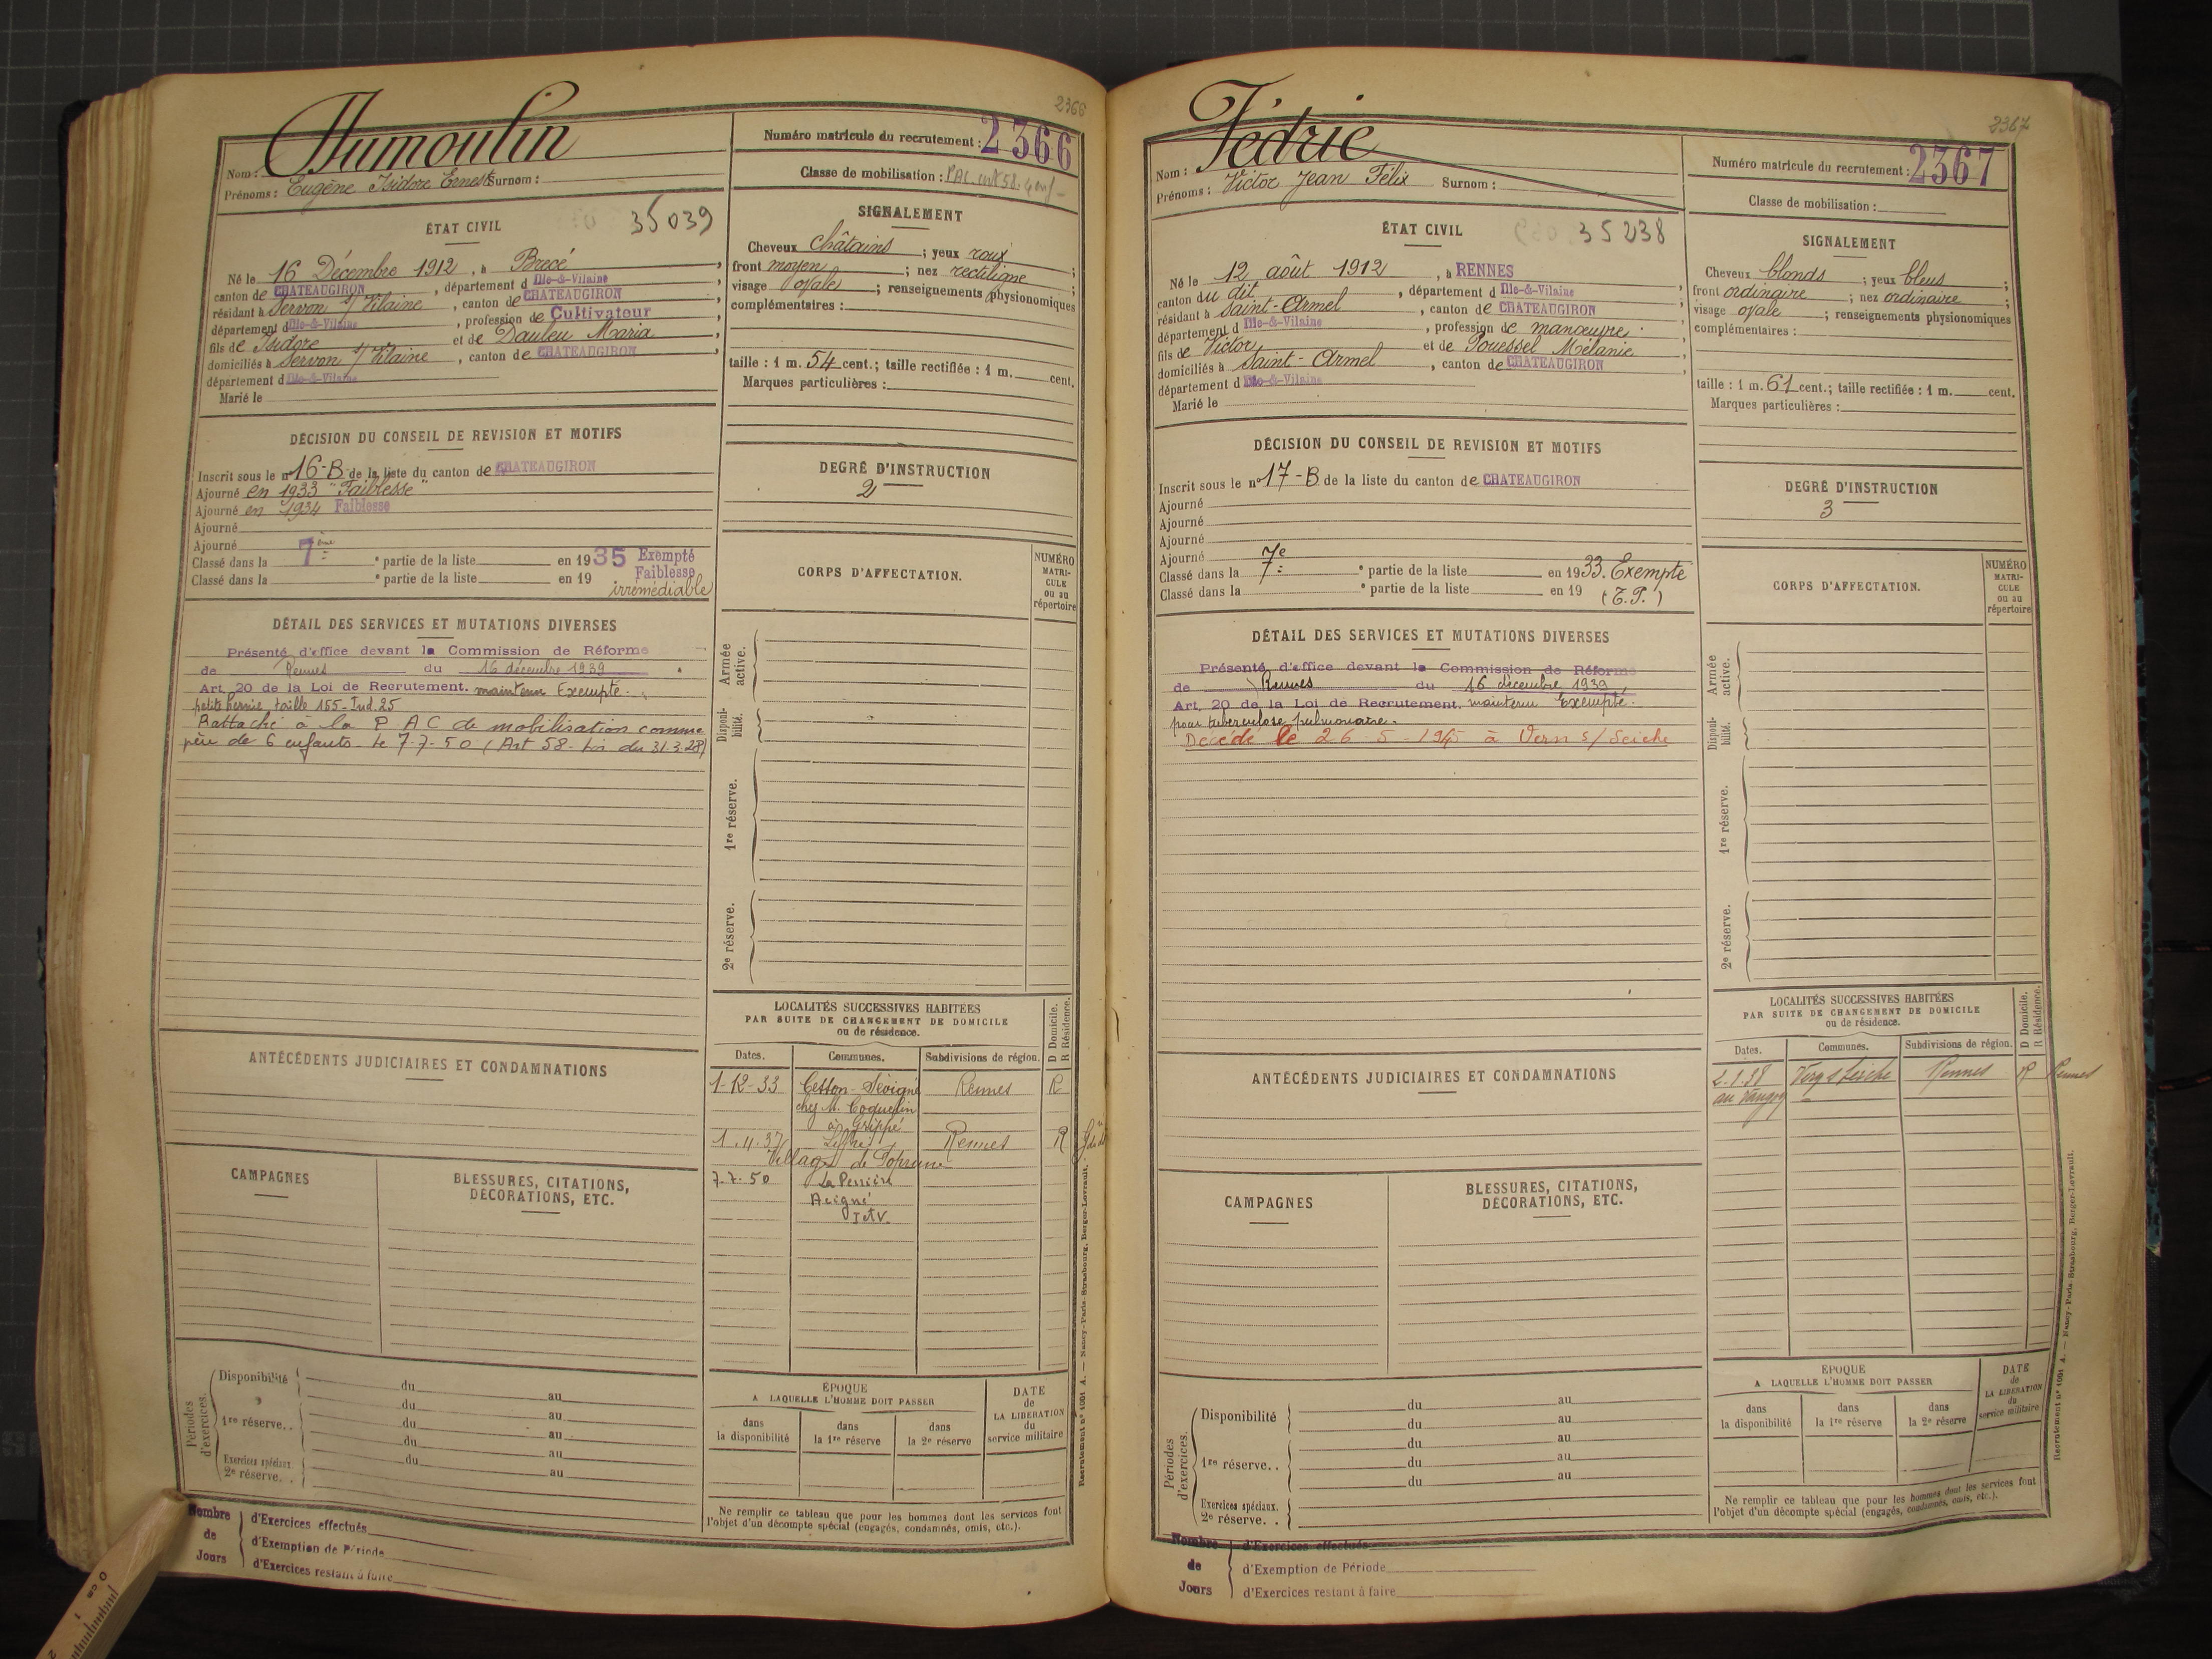 2366
Nom : Dumoulin
Prénoms : Eugène Isidore Ernest Surnom :
Numéro matricule du recrutement : 2366
Classe de mobilisation : PAC art 58.
ÉTAT CIVIL
35039
Né le 16 Décembre 1912, à Brecé,
canton de CHATEAUGIRON, département d Ille-&-Vilaine
résidant à Servon s/ Vilaine, canton de CHATEAUGIRON,
département d Ille-&-Vilaine, profession de Cultivateur
fils de Isidore et de Dauleu Maria,
domiciliés à Servon s/ Vilaine, canton de CHATEAUGIRON,
département d Ille-&-Vilaine
Marié le
SIGNALEMENT
Cheveux châtains ; yeux roux ;
front moyen ; nez rectiligne ;
visage ovale ; renseignements physionomiques
complémentaires :
taille : 1 m. 54 cent. ; taille rectifiée : 1 m. cent.
Marques particulières :
DÉCISION DU CONSEIL DE REVISION ET MOTIFS
Inscrit sous le n° 16-B de la liste du canton de CHATEAUGIRON
Ajourné en 1933 "Faiblesse"
Ajourné en 1934 Faiblesse
Ajourné
Ajourné
Classé dans la 7ème partie de la liste en 1935 Exempté
Classé dans la e partie de la liste en 19 Faiblesse
irrémédiable
DEGRÉ D'INSTRUCTION
2
CORPS D'AFFECTATION.
NUMÉRO
MATRI-
CULE
ou au
répertoire
DÉTAIL DES SERVICES ET MUTATIONS DIVERSES
Présenté d'office devant la Commission de Réforme
de Rennes du 16 décembre 1939
Art. 20 de la Loi de Recrutement. maintenu Exempté.
petite hernie taille 155 - Ind. 25
Rattaché à la P AC de mobilisation comme
père de 6 enfants le 7-7-50 (Art 58 - Loi du 31-3-28)
Armée
active.
Disponi-
bilité.
1re réserve.
2e réserve.
LOCALITÉS SUCCESSIVES HABITÉES
PAR SUITE DE CHANGEMENT DE DOMICILE
ou de résidence.
D Domicile.
R Résidence.
Dates. Communes. Subdivisions de région.
1-12-33 Cesson-Sévigné Rennes R
chez M. Coquelin
à Grippé
1.4.37 Liffré Rennes R
Village de
7.7.50 La Perrière
Acigné
I et V.
ANTÉCÉDENTS JUDICIAIRES ET CONDAMNATIONS
CAMPAGNES
BLESSURES, CITATIONS,
DÉCORATIONS, ETC.
Périodes
d'exercices.
Disponibilité
du au
du au
1re réserve. .
du au
du au
Exercices spéciaux.
2e réserve. .
du au
au
ÉPOQUE
A LAQUELLE L'HOMME DOIT PASSER
dans
la disponibilité
dans
la 1re réserve
dans
la 2e réserve
DATE
de
LA LIBÉRATION
du
service militaire
Ne remplir ce tableau que pour les hommes dont les services font
l'objet d'un décompte spécial (engagés, condamnés, omis, etc.).
Recrutement n° 1001 A. — Nancy-Paris-Strasbourg, Berger-Levrault.
Nombre
de
Jours
d'Exercices effectués
d'Exemption de Période
d'Exercices restant à faire
2367
Nom : Fédric
Prénoms : Victor Jean Félix Surnom :
Numéro matricule du recrutement : 2367
Classe de mobilisation :
ÉTAT CIVIL
35238
Né le 12 août 1912, à RENNES
canton du dit, département d Ille-&-Vilaine,
résidant à Saint-Armel, canton de CHATEAUGIRON,
département d Ille-&-Vilaine, profession de manœuvre,
fils de Victor et de Pouessel Mélanie,
domiciliés à Saint-Armel, canton de CHATEAUGIRON,
département d Ille-&-Vilaine
Marié le
SIGNALEMENT
Cheveux blonds ; yeux bleus ;
front ordinaire ; nez ordinaire ;
visage ovale ; renseignements physionomiques
complémentaires :
taille : 1 m. 61 cent. ; taille rectifiée : 1 m. cent.
Marques particulières :
DÉCISION DU CONSEIL DE REVISION ET MOTIFS
Inscrit sous le n° 17-B de la liste du canton de CHATEAUGIRON
Ajourné
Ajourné
Ajourné
Ajourné
Classé dans la 7e partie de la liste en 1933. Exempté
Classé dans la e partie de la liste en 19 (T.P.)
DEGRÉ D'INSTRUCTION
3
CORPS D'AFFECTATION.
NUMÉRO
MATRI-
CULE
ou au
répertoire
DÉTAIL DES SERVICES ET MUTATIONS DIVERSES
Présenté d'office devant la Commission de Réforme
de Rennes du 16 décembre 1939,
Art. 20 de la Loi de Recrutement. maintenu Exempté.
pour tuberculose pulmonaire.
Décédé le 26-5-1945 à Vern s/ Seiche
Armée
active.
Disponi-
bilité.
1re réserve.
2e réserve.
LOCALITÉS SUCCESSIVES HABITÉES
PAR SUITE DE CHANGEMENT DE DOMICILE
ou de résidence.
D Domicile.
R Résidence.
Dates. Communes. Subdivisions de région.
2.1.38 Vern s Seiche Rennes R Rennes
ANTÉCÉDENTS JUDICIAIRES ET CONDAMNATIONS
CAMPAGNES
BLESSURES, CITATIONS,
DÉCORATIONS, ETC.
Périodes
d'exercices.
Disponibilité
du au
du au
1re réserve. .
du au
du au
du au
Exercices spéciaux.
2e réserve. .
ÉPOQUE
A LAQUELLE L'HOMME DOIT PASSER
dans
la disponibilité
dans
la 1re réserve
dans
la 2e réserve
DATE
de
LA LIBÉRATION
du
service militaire
Ne remplir ce tableau que pour les hommes dont les services font
l'objet d'un décompte spécial (engagés, condamnés, omis, etc.).
Recrutement n° 1001 A. — Nancy-Paris-Strasbourg, Berger-Levrault.
Nombre
de
Jours
d'Exercices effectués
d'Exemption de Période
d'Exercices restant à faire
0 cm 1 2